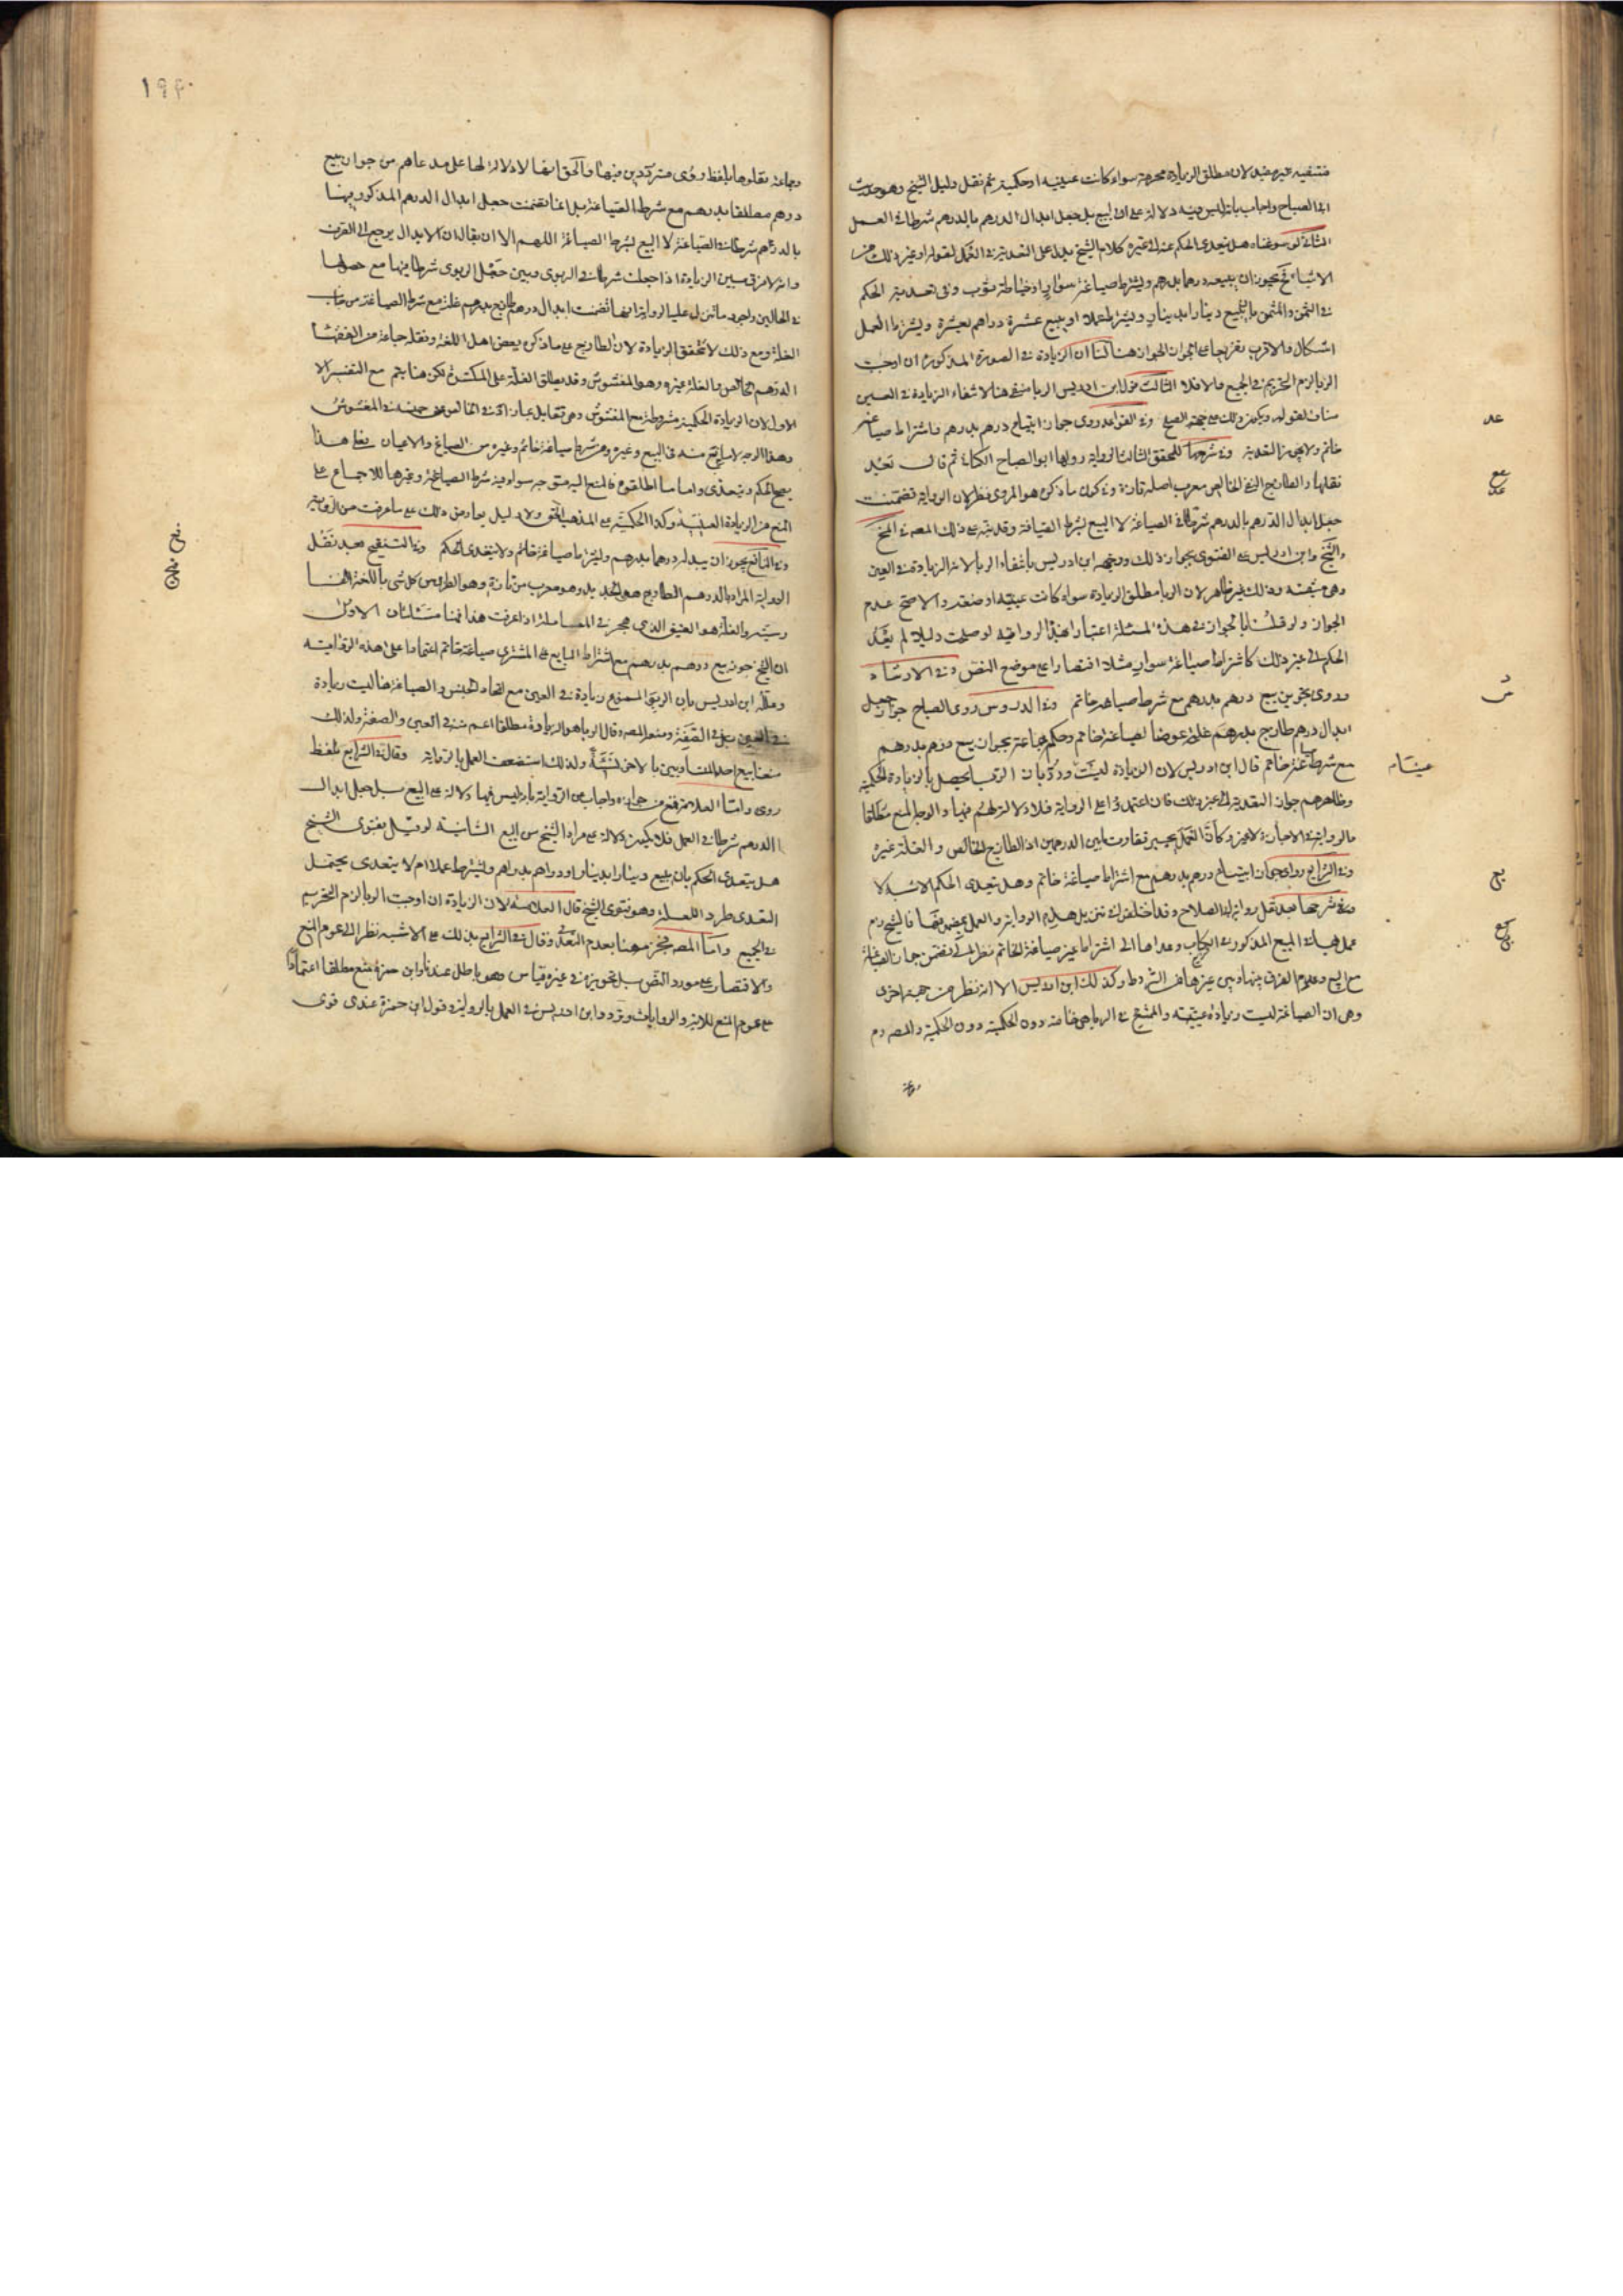 فتنفيه وفيه ضعيف لان مطلق الزيادة محرمة سواء كانت عينية او حكمية ثم نقل دليل الشيخ وهو حديث
ابي الصباح واجاب بانه ليس فيه دلالة على ان البيع بل جعل ابدال الدرهم بالدرهم شرطا في العمل
الثاني لو سوغناه هل يتعدى الحكم عنه الى غيره كلام الشيخ يدل على التعدية في العمل لقوله او غير ذلك من
الاشياء فح يجوز ان يبيعه درهما بدرهم ويشترط صياغة سوار او خياطة ثوب وفي تعدية الحكم
في الثمن والمثمن بان يبيع دينارا بدينار ويشترط عملا او يبيع عشرة دراهم بعشرة ويشترط العمل
اشكال والاقرب تفريعا على الجواز الجواز هنا لنا ان الزيادة في الصورة المذكورة ان اوجبت
الربا لزم التحريم في الجميع والا فلا الثالث قول ابن ادريس الربا منفي هنا لانتفاء الزيادة في العين
مناف لقوله ويكون ذلك على جهة الصلح وفي القواعد روى جواز ابتياع درهم بدرهم واشتراط صياغة
خاتم ولا يجوز التعدية وفي شرحها للمحقق الثالث الرواية رواها ابو الصباح الكناني ثم قال بعد
نقلها والطازج الخالص معرب اصله تازه وفي كون ما ذكره هو المروي نظر لان الرواية تضمنت
جعل ابدال الدرهم بالدرهم شرطا في الصياغة لا البيع بشرط الصياغة وقد نبه على ذلك المصنف في المخ
والشيخ وابن ادريس على الفتوى بجواز ذلك ووجهه ابن ادريس بانتفاء الربا لانه الزيادة في العين
وهي منتفية وذلك غير ظاهر لان الربا مطلق الزيادة سواء كانت عينية او صفة والاصح عدم
الجواز ولو قلنا بالجواز في هذه المسئلة اعتبارا بهذه الرواية لو صلحت دليلا لم يتعد
الحكم الى غير ذلك كاشتراط صياغة سوار مثلا اقتصارا على موضع النص وفي الارشاد
وروى تجويز بيع درهم بدرهم مع شرط صياغة خاتم وفي الدروس روى الصباح جواز جعل
ابدال درهم طازج بدرهم غلة عوضا لصياغة خاتم وحكم جماعة بجواز بيع درهم بدرهم
مع شرط صياغة خاتم قال ابن ادريس لان الزيادة ليست ورد بان الربا يحصل بالزيادة الحكمية
وظاهرهم جواز التعدية الى غير ذلك فان اعتمدوا على الرواية فلا دلالة لهم فيها والوجه المنع مطلقا
والرواية في الاجارة لا غير وكان العمل يجبر تفاوت ما بين الدرهمين اذ الطازج الخالص والغلة غيره
وفي الشرايع روى جواز ابتياع درهم بدرهم مع اشتراط صياغة خاتم وهل يتعدى الحكم الاشبه لا
وفي شرحها بعد نقل رواية ابي الصلاح وقد اختلفوا في تنزيل هذه الرواية والعمل بمضمونها فالشيخ رحم
عمل بها في البيع المذكور في الكتاب وعداها الى اشتراط غير صياغة الخاتم نظرا الى تضمن جواز الصياغة
مع البيع وعدم الفرق بينها وبين غيرها من الشروط وكذلك ابن ادريس الا انه نظر من جهة اخرى
وهي ان الصياغة ليست زيادة عينية والممتنع في الربا هي خاصة دون الحكمية دون الحكمية والمصه رحم
عد
ميسام
١٩٤٠
وجماعة نقلوها بلفظ روى مترددين فيها والحق انها لا دلالة لها على مدعاهم من جواز بيع
درهم مطلقا بدرهم مع شرط الصياغة بل انما تضمنت جعل ابدال الدرهم المذكور فيها
بالدرهم شرطا في الصياغة لا البيع بشرط الصياغة اللهم الا ان يقال ان الابدال يرجع الى القرض
وانه لا فرق بين الزيادة اذا جعلت شرطا في الربوي وبين جعل الربوي شرطا فيها مع حصولها
في الحالين واجود ما تنزل عليه الرواية انها تضمنت ابدال درهم طازج بدرهم غلة مع شرط الصياغة من جانب
الغلة ومع ذلك لا تتحقق الزيادة لان الطازج على ما ذكره بعض اهل اللغة ونقله جماعة من الفقهاء
الدرهم الخالص والغلة غيره وهو المغشوش وقد يطلق الغلة على المكسرة لكن هنا يتم مع التفسير الا
الاول لان الزيادة الحكمية مشروطة مع المغشوش وهي تقابل بما زاد في الخالص عن جنسه في المغشوش
وهذا الوجه لا مانع منه في البيع وغيره ومن شرط صياغة خاتم وغيره من الصياغ والاعيان فعلى هذا
يصح الحكم ويتعدى واما ما اطلقوه فالمنع اليه متوجه سواء فيه شرط الصياغة وغيرها للاجماع على
المنع من الزيادة العينية وكذا الحكمية على المذهب الحق ولا دليل يعارض ذلك على ما عرفت من الرواية
وفي النافع يجوز ان يبدله درهما بدرهم ويشترط صياغة خاتم ولا يتعدى الحكم وفي التنقيح بعد نقل
الرواية المراد بالدرهم الطازج هو الجديد وهو معرب من تازه وهو الطري من كل شيء باللغة
والغلة هو العتيق الذي هجر في المعاملة اذا عرفت هذا فهنا مسئلتان الاولى
ان الشيخ جوز بيع درهم بدرهم مع اشتراط البايع على المشتري صياغة خاتم اعتمادا على هذه الرواية
وعلله ابن ادريس بان الربا الممنوع زيادة في العين مع اتحاد الجنس والصياغة هنا ليست زيادة
في العين بل في الصفة ومنعه المصه وقال الربا هو الزيادة مطلقا اعم من في العين والصفة ولذلك
منعنا بيع احد المتساويين بالاخر نسيئة ولذلك استضعف العمل بالرواية وقال في الشرايع بلفظ
روى واما العلامة فمنع من جوازه واجاب عن الرواية بانه ليس فيها دلالة على البيع بل جعل ابدال
الدرهم شرطا في العمل فلا يكون دلالة على مراد الشيخ من البيع الثانية لو قيل بفتوى الشيخ
هل يتعدى الحكم بان يبيع دينارا بدينار او دراهم بدراهم ويشترط عملا ام لا يتعدى يحتمل
التعدي طردا للعلة وهو فتوى الشيخ قال العلامة لان الزيادة ان اوجبت الربا لزم التحريم
في الجميع واما المصه فجزم هنا بعدم التعد وقال في الشرايع بذلك على الاشبه نظرا الى عموم المنع
والاقتصار على مورد النص بل تجويزه في غيره قياس وهو باطل عندنا وابن حمزة منع مطلقا اعتمادا
على عموم المنع للاية والروايات وتردد ابن ادريس في العمل بالرواية وقول ابن حمزة عندي قوى